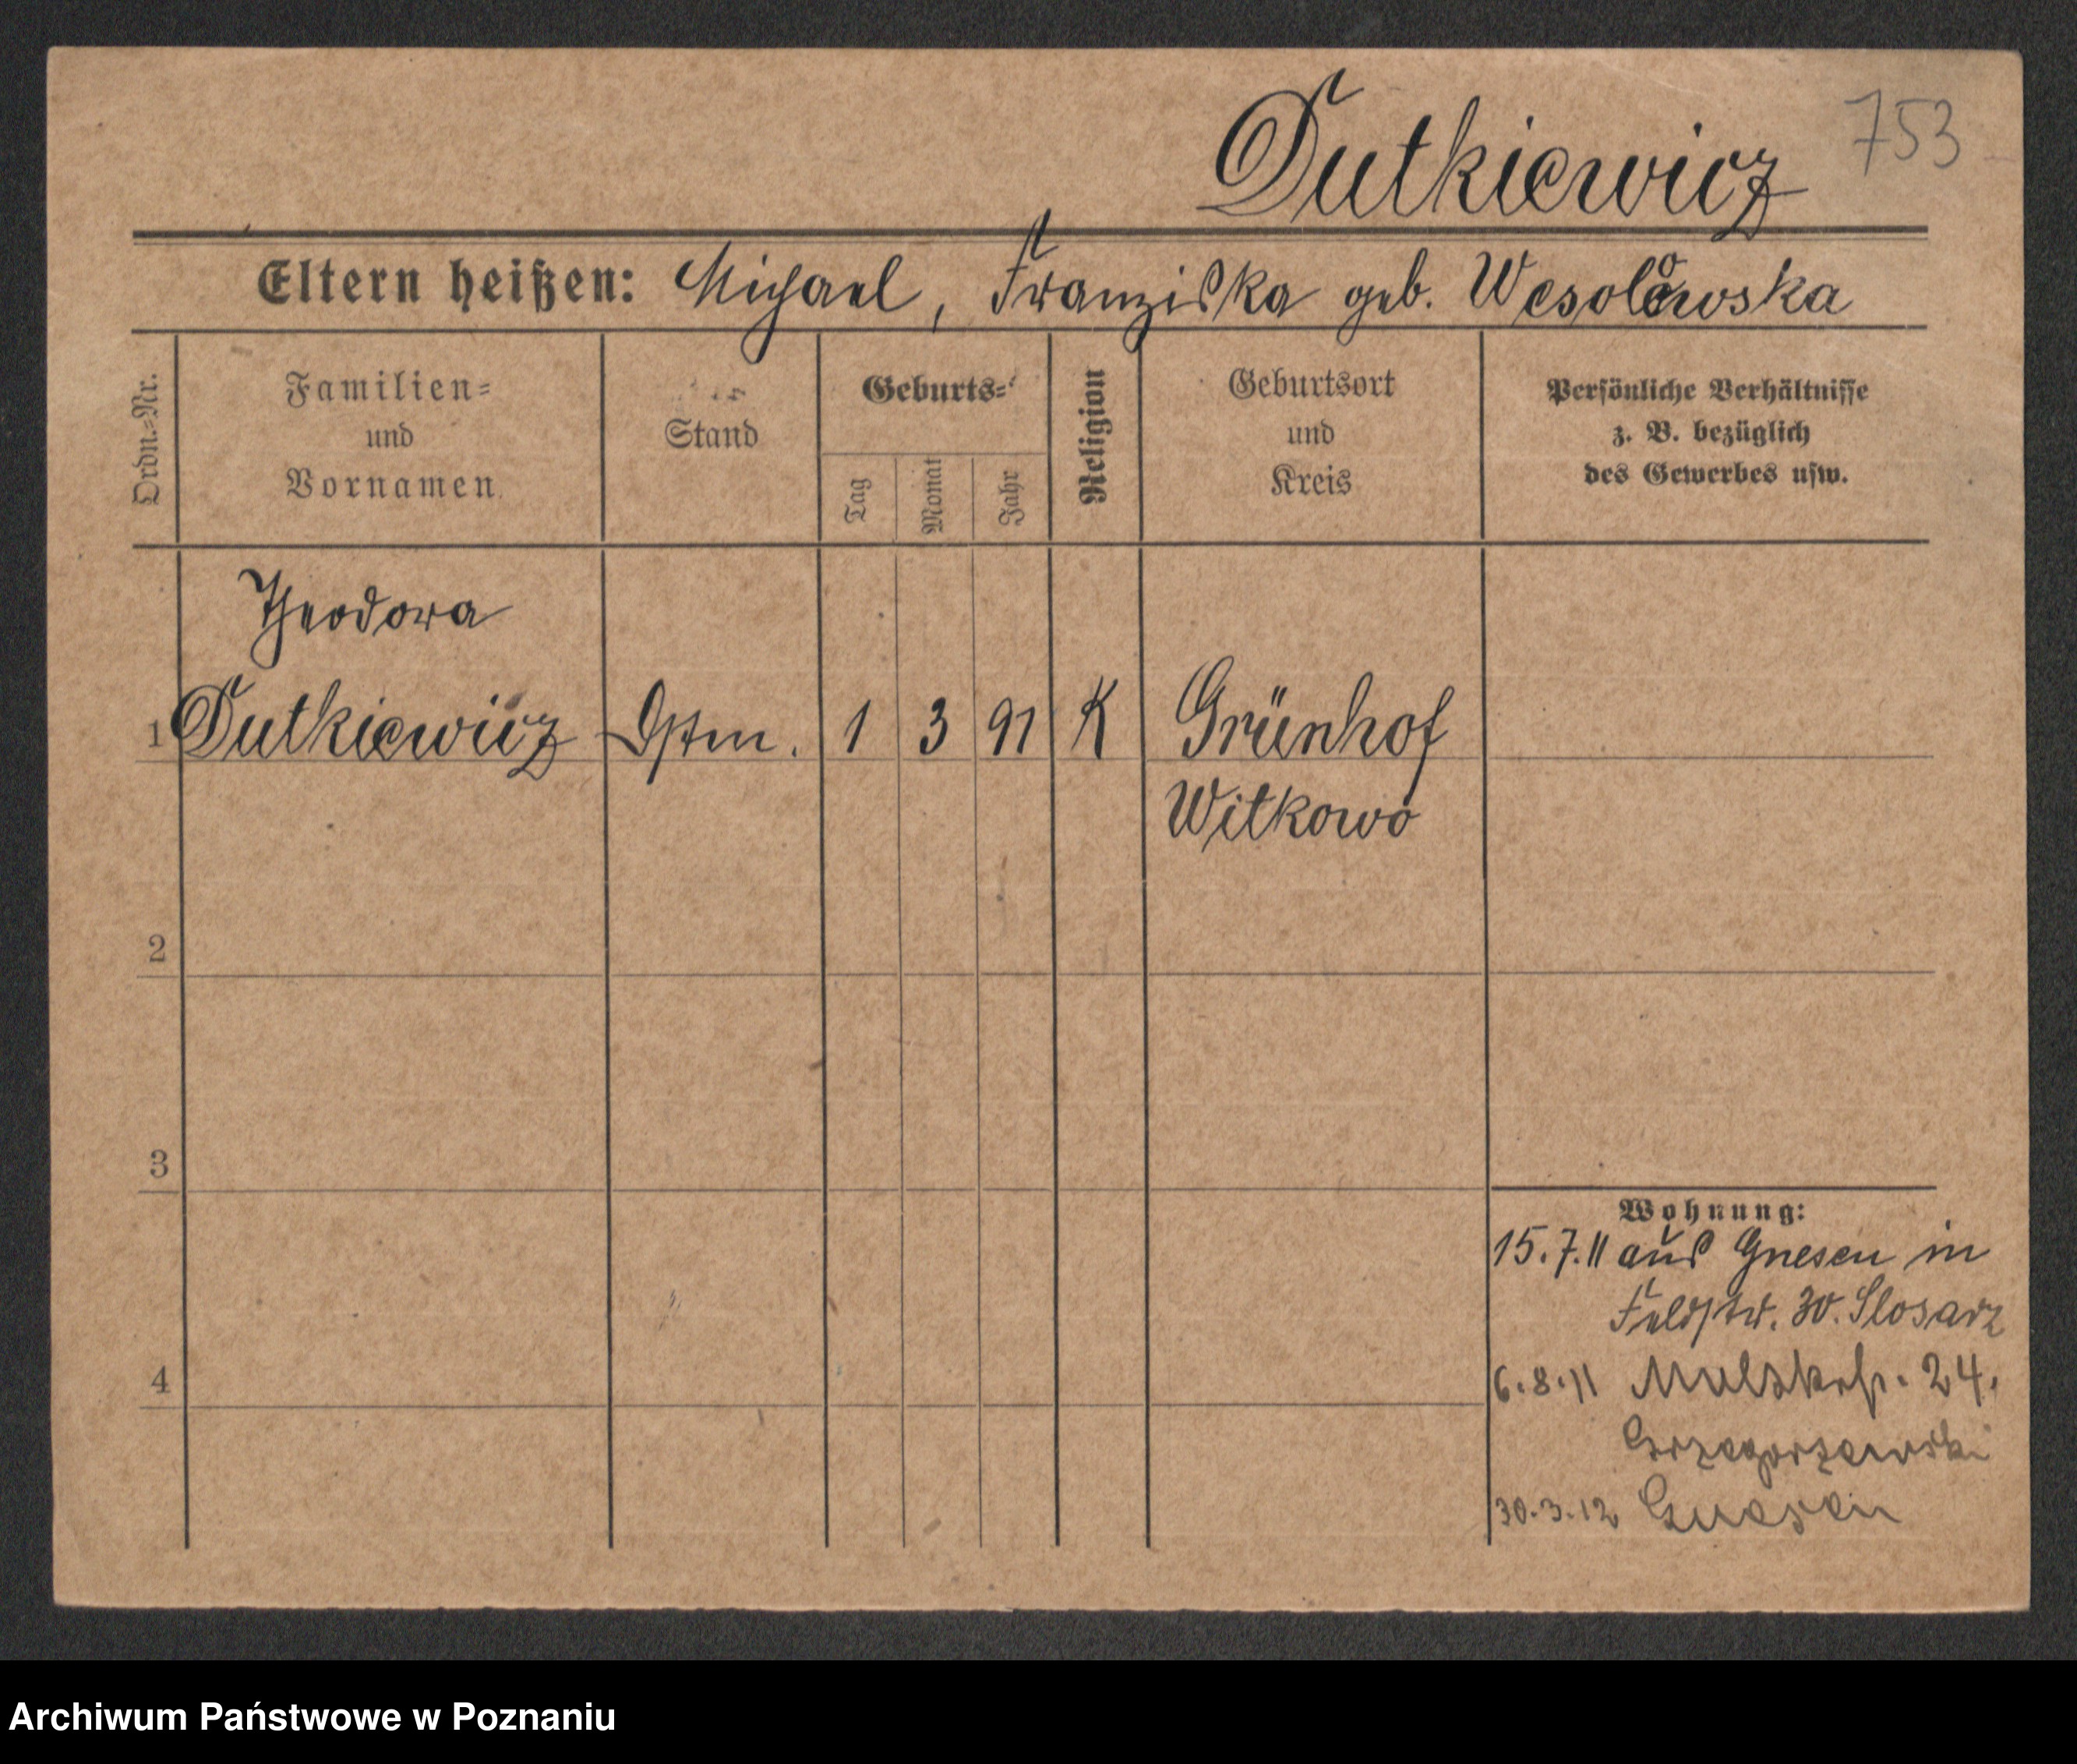 Dutkiewicz 753
Eltern heißen: Michael, Franziska geb. Wesolowska
Ordn.=Nr.
Familien=
und
Vornamen
Stand
Geburts=
Tag
Monat
Jahr
Religion
Geburtsort
und
Kreis
Persönliche Verhältnisse
z. B. bezüglich
des Gewerbes usw.
Theodora
1 Dutkiewicz 1 3 91 K Grünhof
Witkowo
2
3
4
Wohnung:
15.7.11 aus Gnesen in
Feldstr. 30. Slosarz
6.8.11 24.
Grzegorzewski
30.3.12 Gnesen
Archiwum Państwowe w Poznaniu